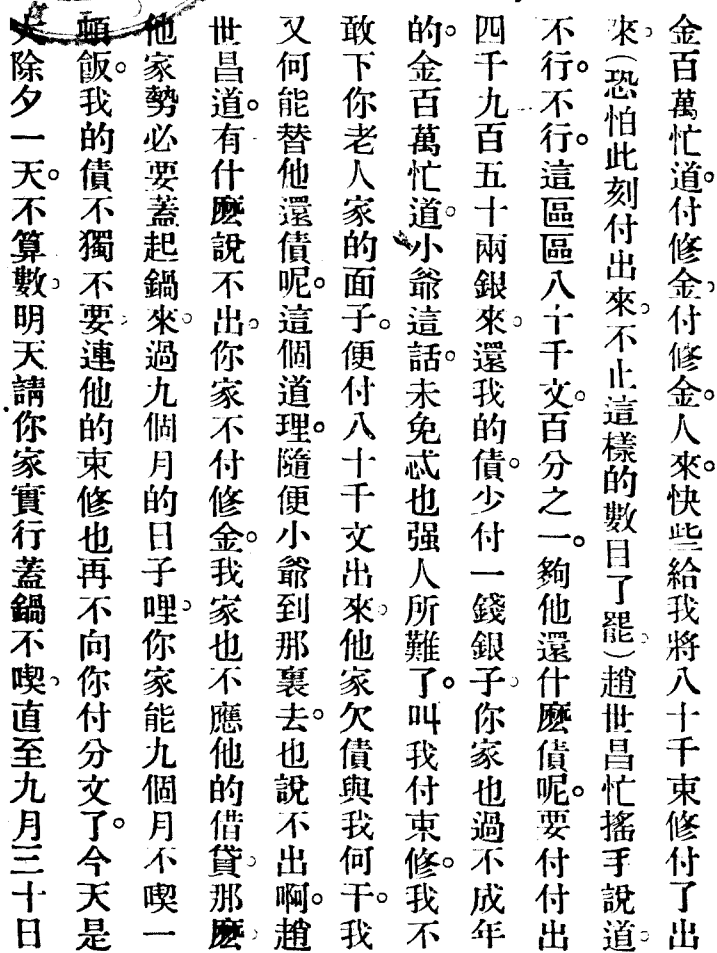 金百萬忙道。付修金。付修金。人來。快些給我將八十千束修付了出
來。(恐怕此刻付出來。不止這樣的數目了罷。)趙世昌忙搖手說道。
不行。不行。這區區八十千文。百分之一。夠他還什麼債呢。要付付出
四千九百五十兩銀來。還我的債。少付一錢銀子。你家也過不成年
的。金百萬忙道。小爺這話。未免忒也强人所難了。叫我付束修。我不
敢下你老人家的面子。便付八十千文出來。他家欠債與我何干。我
又何能替他還債呢。這個道理。隨便小爺到那裏去。也說不出啊。趙
世昌道。有什麼說不出。你家不付修金。我家也不應他的借貸。那麼。
他家勢必要蓋起鍋來。過九個月的日子哩。你家能九個月不喫一
頓飯。我的債不獨不要。連他的束修也再不向你付分文了。今天是
大除夕一天。不算數。明天請你家實行蓋鍋不喫。直至九月三十日